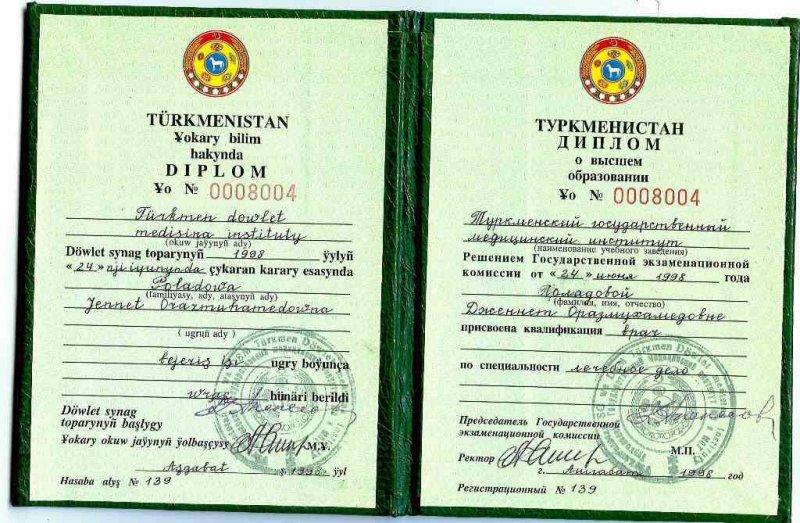 TÜRKMENISTAN
¥okary bilim
hakynda
DIPLOM
¥o № 0008004
Türkmen döwlet
medisina instituty
(okuw jaýynyň ady)
Döwlet synag toparynyň 1998 ýylyň
«24» nji iýunynda çykaran karary esasynda
Poladowa
(familiýasy, ady, atasynyň ady)
Jennet Orazmuhamedowna
( ugruň ady)
bejeriş işi ugry boýunça
wraç hünäri berildi
Döwlet synag
toparynyň başlygy
¥okary okuw jaýynyň ýolbaşçysy M.Ұ.
Aşgabat ş. 1998 ýyl
Hasaba alyş № 139
ТУРКМЕНИСТАН
ДИПЛОМ
о высшем
образовании
¥o № 0008004
Туркменский государственный
медицинский институт
(наименование учебного заведения)
Решением Государственной экзаменационной
комиссии от «24» июня 1998 года
Поладовой
(фамилия, имя, отчество)
Дженнет Оразмухамедовне
присвоена квалификация врач
по специальности лечебное дело
Председатель Государственной
экзаменационной комиссии
Ректор М.П.
г. Ашгабат 1998 год
Регистрационный № 139